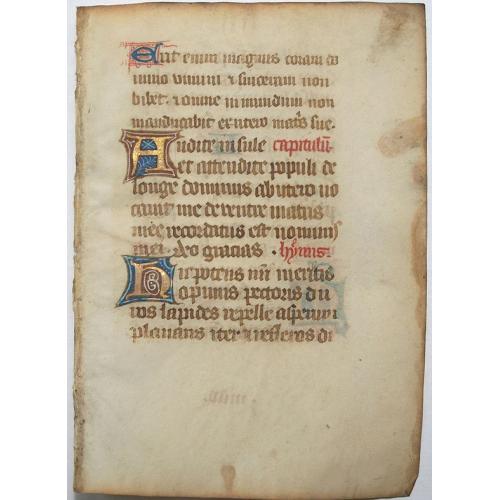 Erit enim magnus coram do
mino vinum & siceram non
bibet. & omne in mundum non
manducabit ex utero matris sue.
Audite insule capitulum
et attendite populi de
longe dominus ab utero vo
cavit me de ventre matris
mee recordatus est nominis
mei. deo gracias. hymnus.
Nunc potens nostri meritis
opimis pectoris du
ros lapides repelle asperum
planans iter & reflexos di